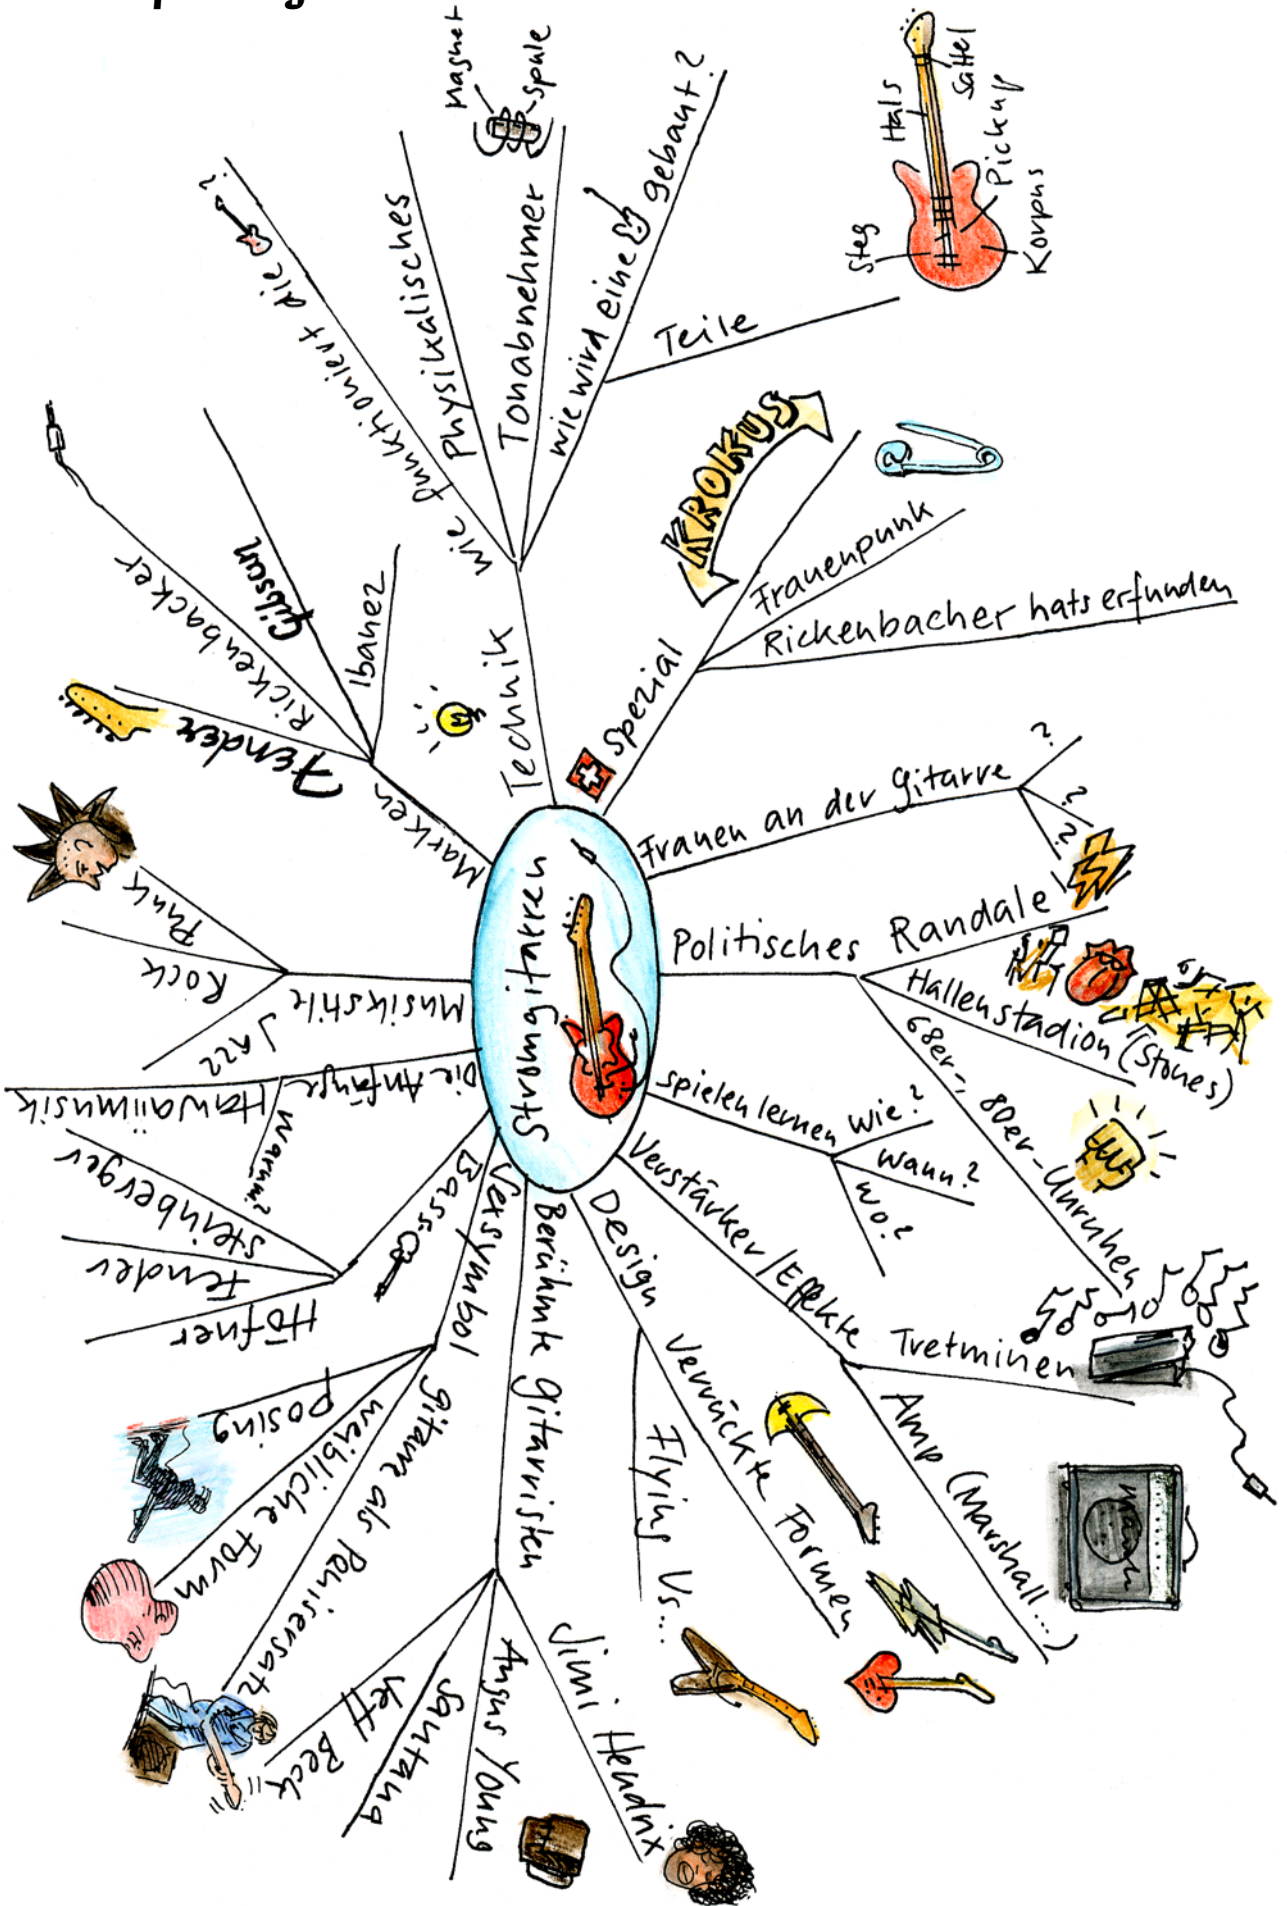 Stromgitarren
Technik
wie funktioniert die
?
Physikalisches
Tonabnehmer
Magnet
Spule
wie wird eine
gebaut?
Teile
Hals
Sattel
Pickup
Korpus
Steg
Spezial
KROKUS
Frauenpunk
Rickenbacher hats erfunden
Frauen an der Gitarre
?
?
?
Politisches
Randale
Hallenstadion (Stones)
68er-, 80er-Unruhen
spielen lernen
wie?
wann?
wo?
Verstärker/Effekte
Tretminen
Amp (Marshall...)
Marsh
Design
Verrückte Formen
Flying Vs...
Berühmte Gitarristen
Jimi Hendrix
Angus Young
Santana
Jeff Beck
Sexsymbol
Gitarre als Penisersatz
weibliche Form
Posing
Bass
Höfner
Fender
Steinberger
Die Anfänge
Hawaiimusik
warum?
Musikstile
Jazz
Rock
Punk
Marken
Fender
Rickenbacker
Gibson
Ibanez